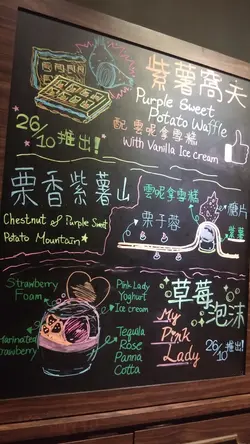 紫薯窩夫
Purple Sweet
Potato Waffle
配 雲呢拿雪糕
With Vanilla Ice cream
26/10 推出!
栗香紫薯山
Chestnut of Purple Sweet
Potato Mountain
雲呢拿雪糕
栗子蓉
脆片
紫薯
草莓
泡沫
My
Pink
Lady
26/10 推出!
Strawberry
Foam
Marinated
Strawberry
Pink Lady
Yoghurt
Ice cream
Tequila
Rose
Panna
Cotta